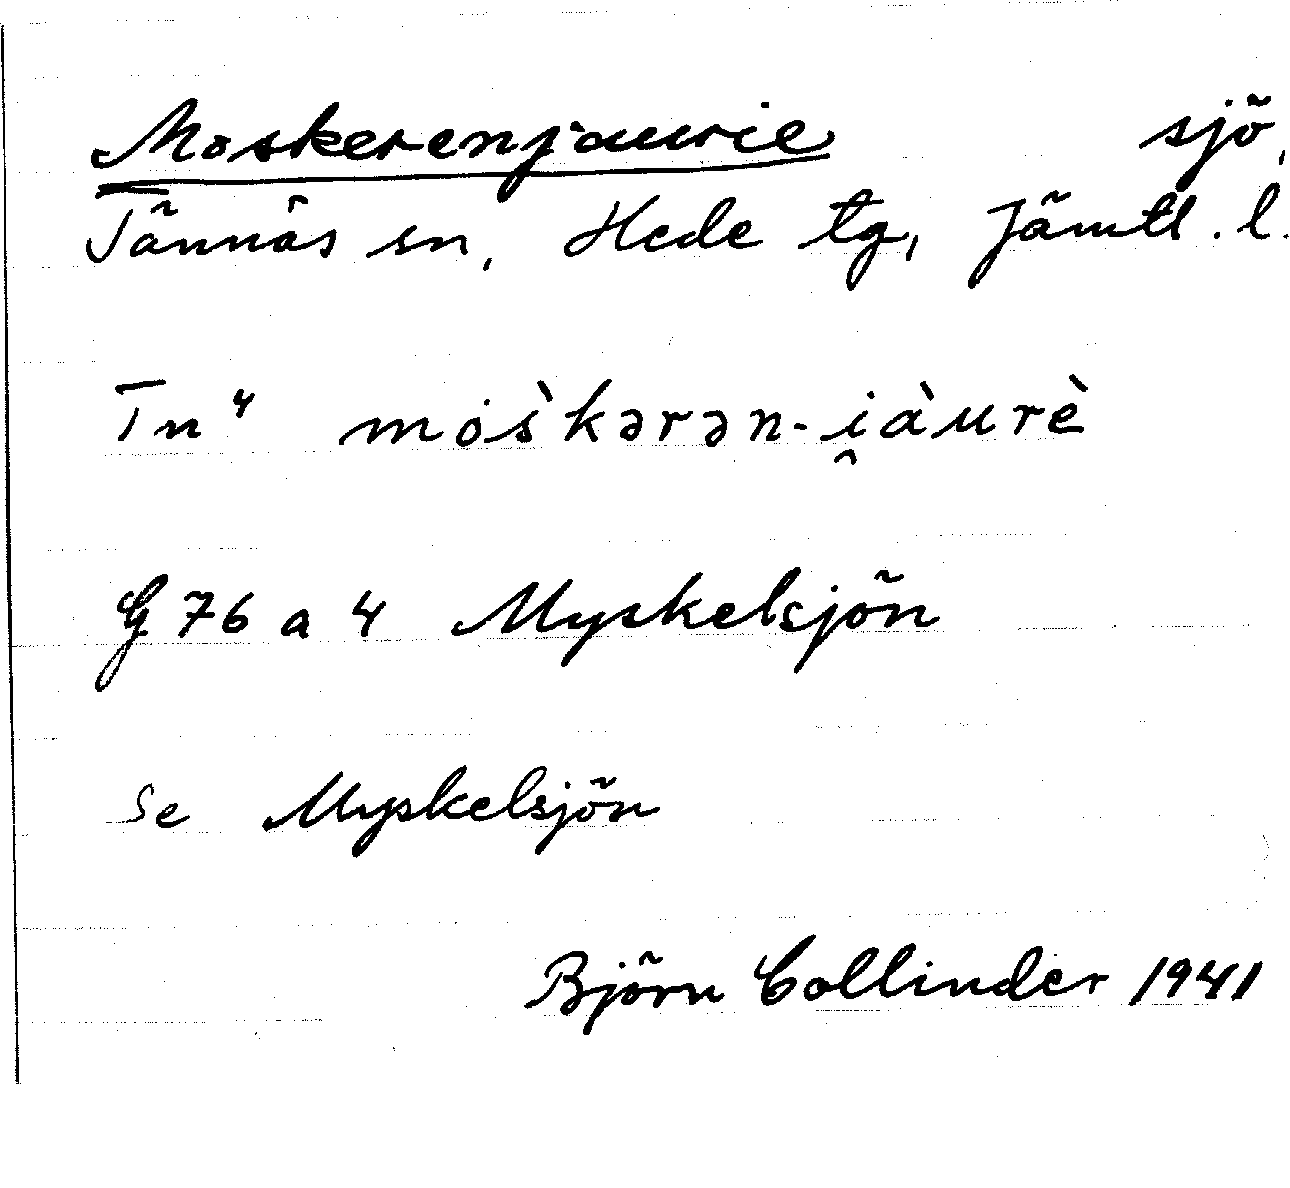 Moskerenjaurie sjö,
Tännäs sn, Hede tg, Jämtl. l.
Tn⁴ mȯs̀kərən-i̯àurè
G 76 a 4 Myskelsjön
Se Myskelsjön
Björn Collinder 1941